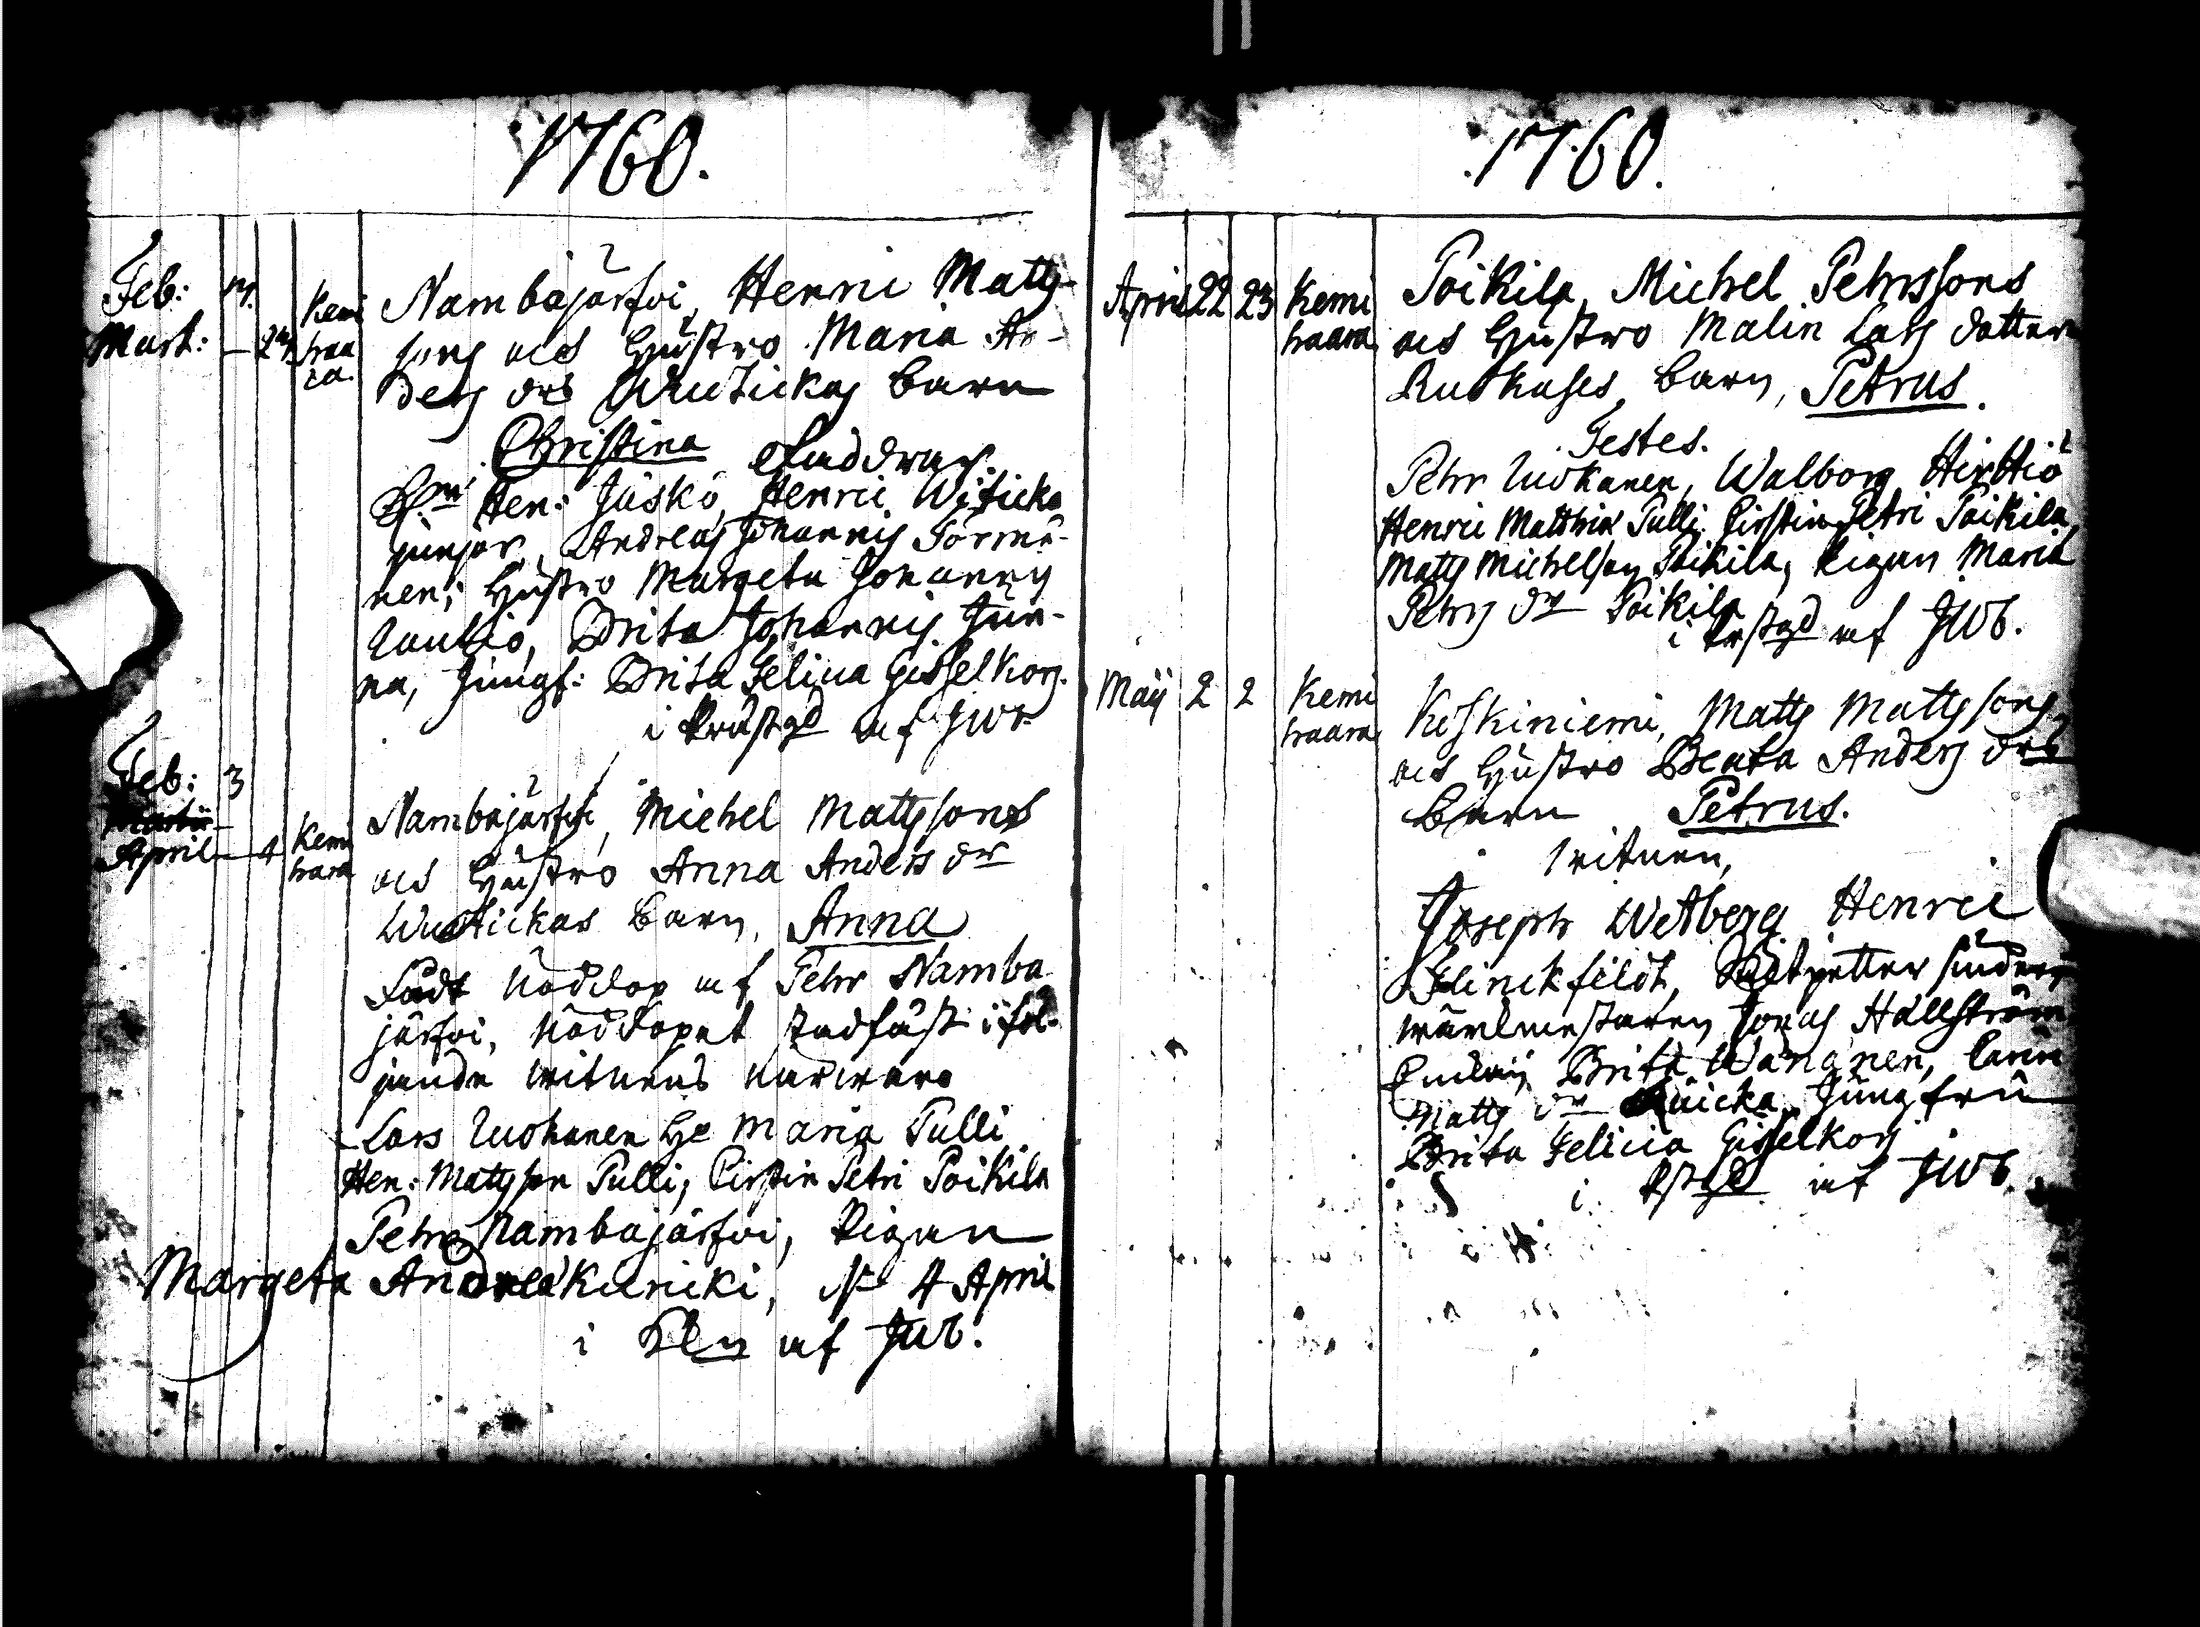 1760.
Feb:
Mart: 24
Kemi
traa
ra
Nambajärfvi, Henric Matts-
sons och Hustro Maria An-
ders drs Wuotickas barn
Christina Faddrar.
Hen: Juskò, Henric Witicka
junior, Andreas Johannis Törmä-
nen; Hustro Margeta Johannis
Laulio, Brita Johannis Jun-
na, Jungf: Brita Felicia Gisselkors.
i af JWb
Feb: 3
April 4
Kemi
traara
Nambajärfvi, Michel Mattssons
och Hustro Anna Anders dr
Wuotickas barn, Anna
Födt Nöddop af Pehr Namba
järfvi, Nöddopet stadfäst i föl-
jande witnens närwaro
Lars Luokanen Hu Maria Pulli
Hen: Mattsson Pulli, Cirstin Petri Poikila
Pehr Nambajärfvi, Pigan
Margeta Andreæ Kuricki, 4 April
i af JWb.
1760.
April 22 23 Kemi
traara
Poikila, Michel Pehrssons
och Hustro Malin Lars dotter
barn, Petrus.
Testes.
Pehr Luokanen, Walborg Hirttiö
Henric Matthiæ Pulli, Cirstin Petri Poikila,
Matts Michelson Poikila, Pigan Maria
Pehrs dr Poikila
i af JWb.
Maij 2 2 Kemi
traara
Keskiniemi, Matts Mattssons,
och Hustro Beata Anders drs
Barn Petrus.
Witnen,
Joseph Wetberg Henric
Klinckfeldt,
Jonas Hallström
Brita Wänänen, Carin
Matts dr Jungfru
Brita Felicia Gisselkors
i af JWb.